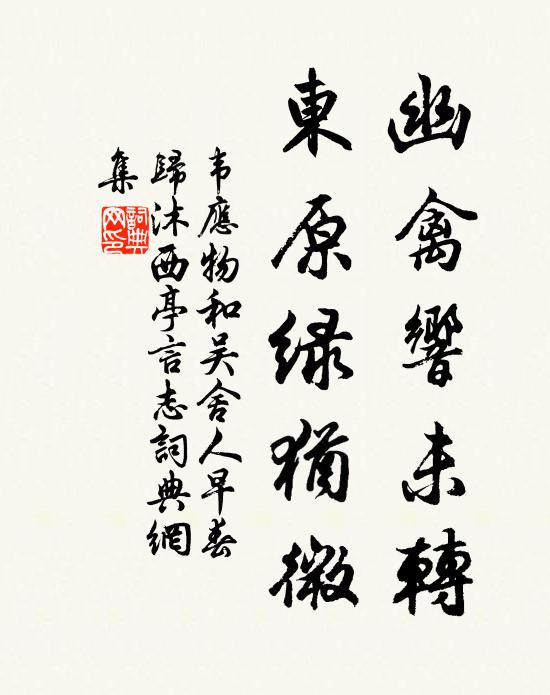 幽禽響未轉
東原緑猶微
韦應物和吴舍人早春
歸沐西亭言志詞典網
集
詞典網印